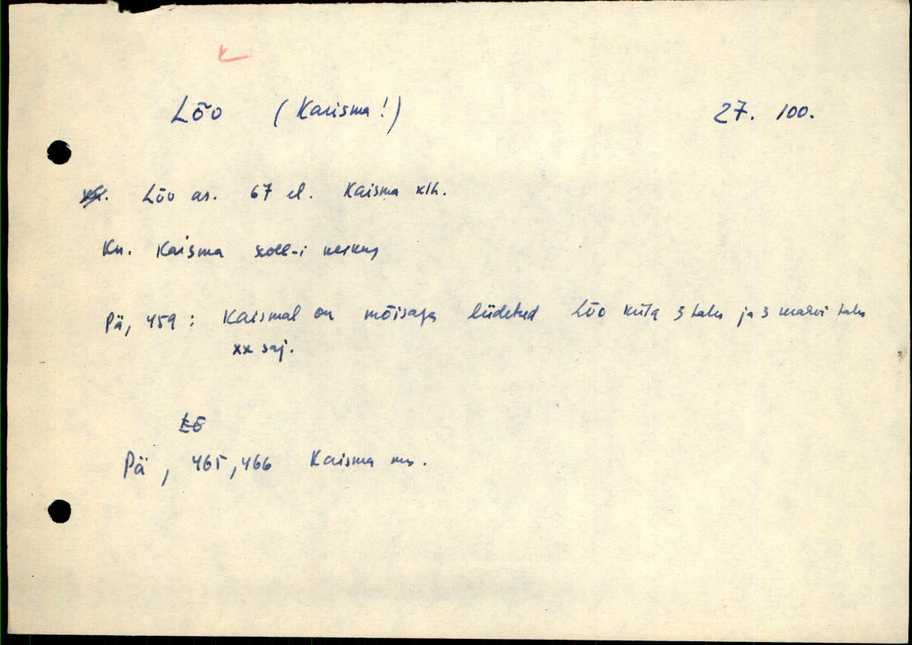 Lõo (Kaisma!) 27. 100.
Lõo as. 67 el. Kaisma klh.
Kn. Kaisma
Pä, 459: Kaismal on mõisaga liidetud Lõo küla 3 talu ja 3 talu
XX saj.
Lõ
Pä, 465, 466 Kaisma